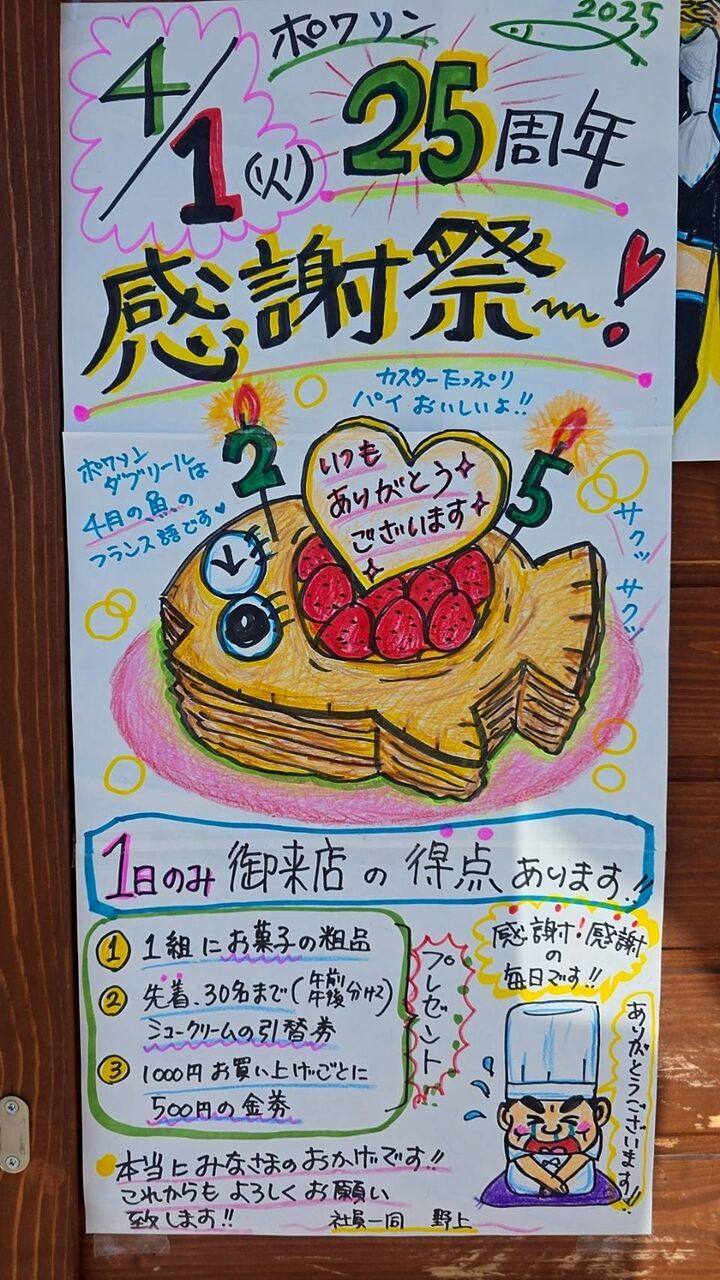 2025
4/1(火)
ポワソン
25周年
感謝祭〜!
カスターたっぷり
パイ おいしいよ!!
ポワソン
ダブリールは
4月の魚の
フランス語です♥
2
5
いつも
ありがとう
ございます
サクッ
サクッ
1日のみ 御来店の得点あります!!
① 1組にお菓子の粗品
② 先着.30名まで(午前午後分けて)
シュークリームの引替券
③ 1000円お買い上げごとに
500円の金券
プレゼント
感謝!感謝
の
毎日です!!
ありがとうございます!!
本当にみなさまのおかげです!!
これからもよろしくお願い
致します!!
社員一同 野上